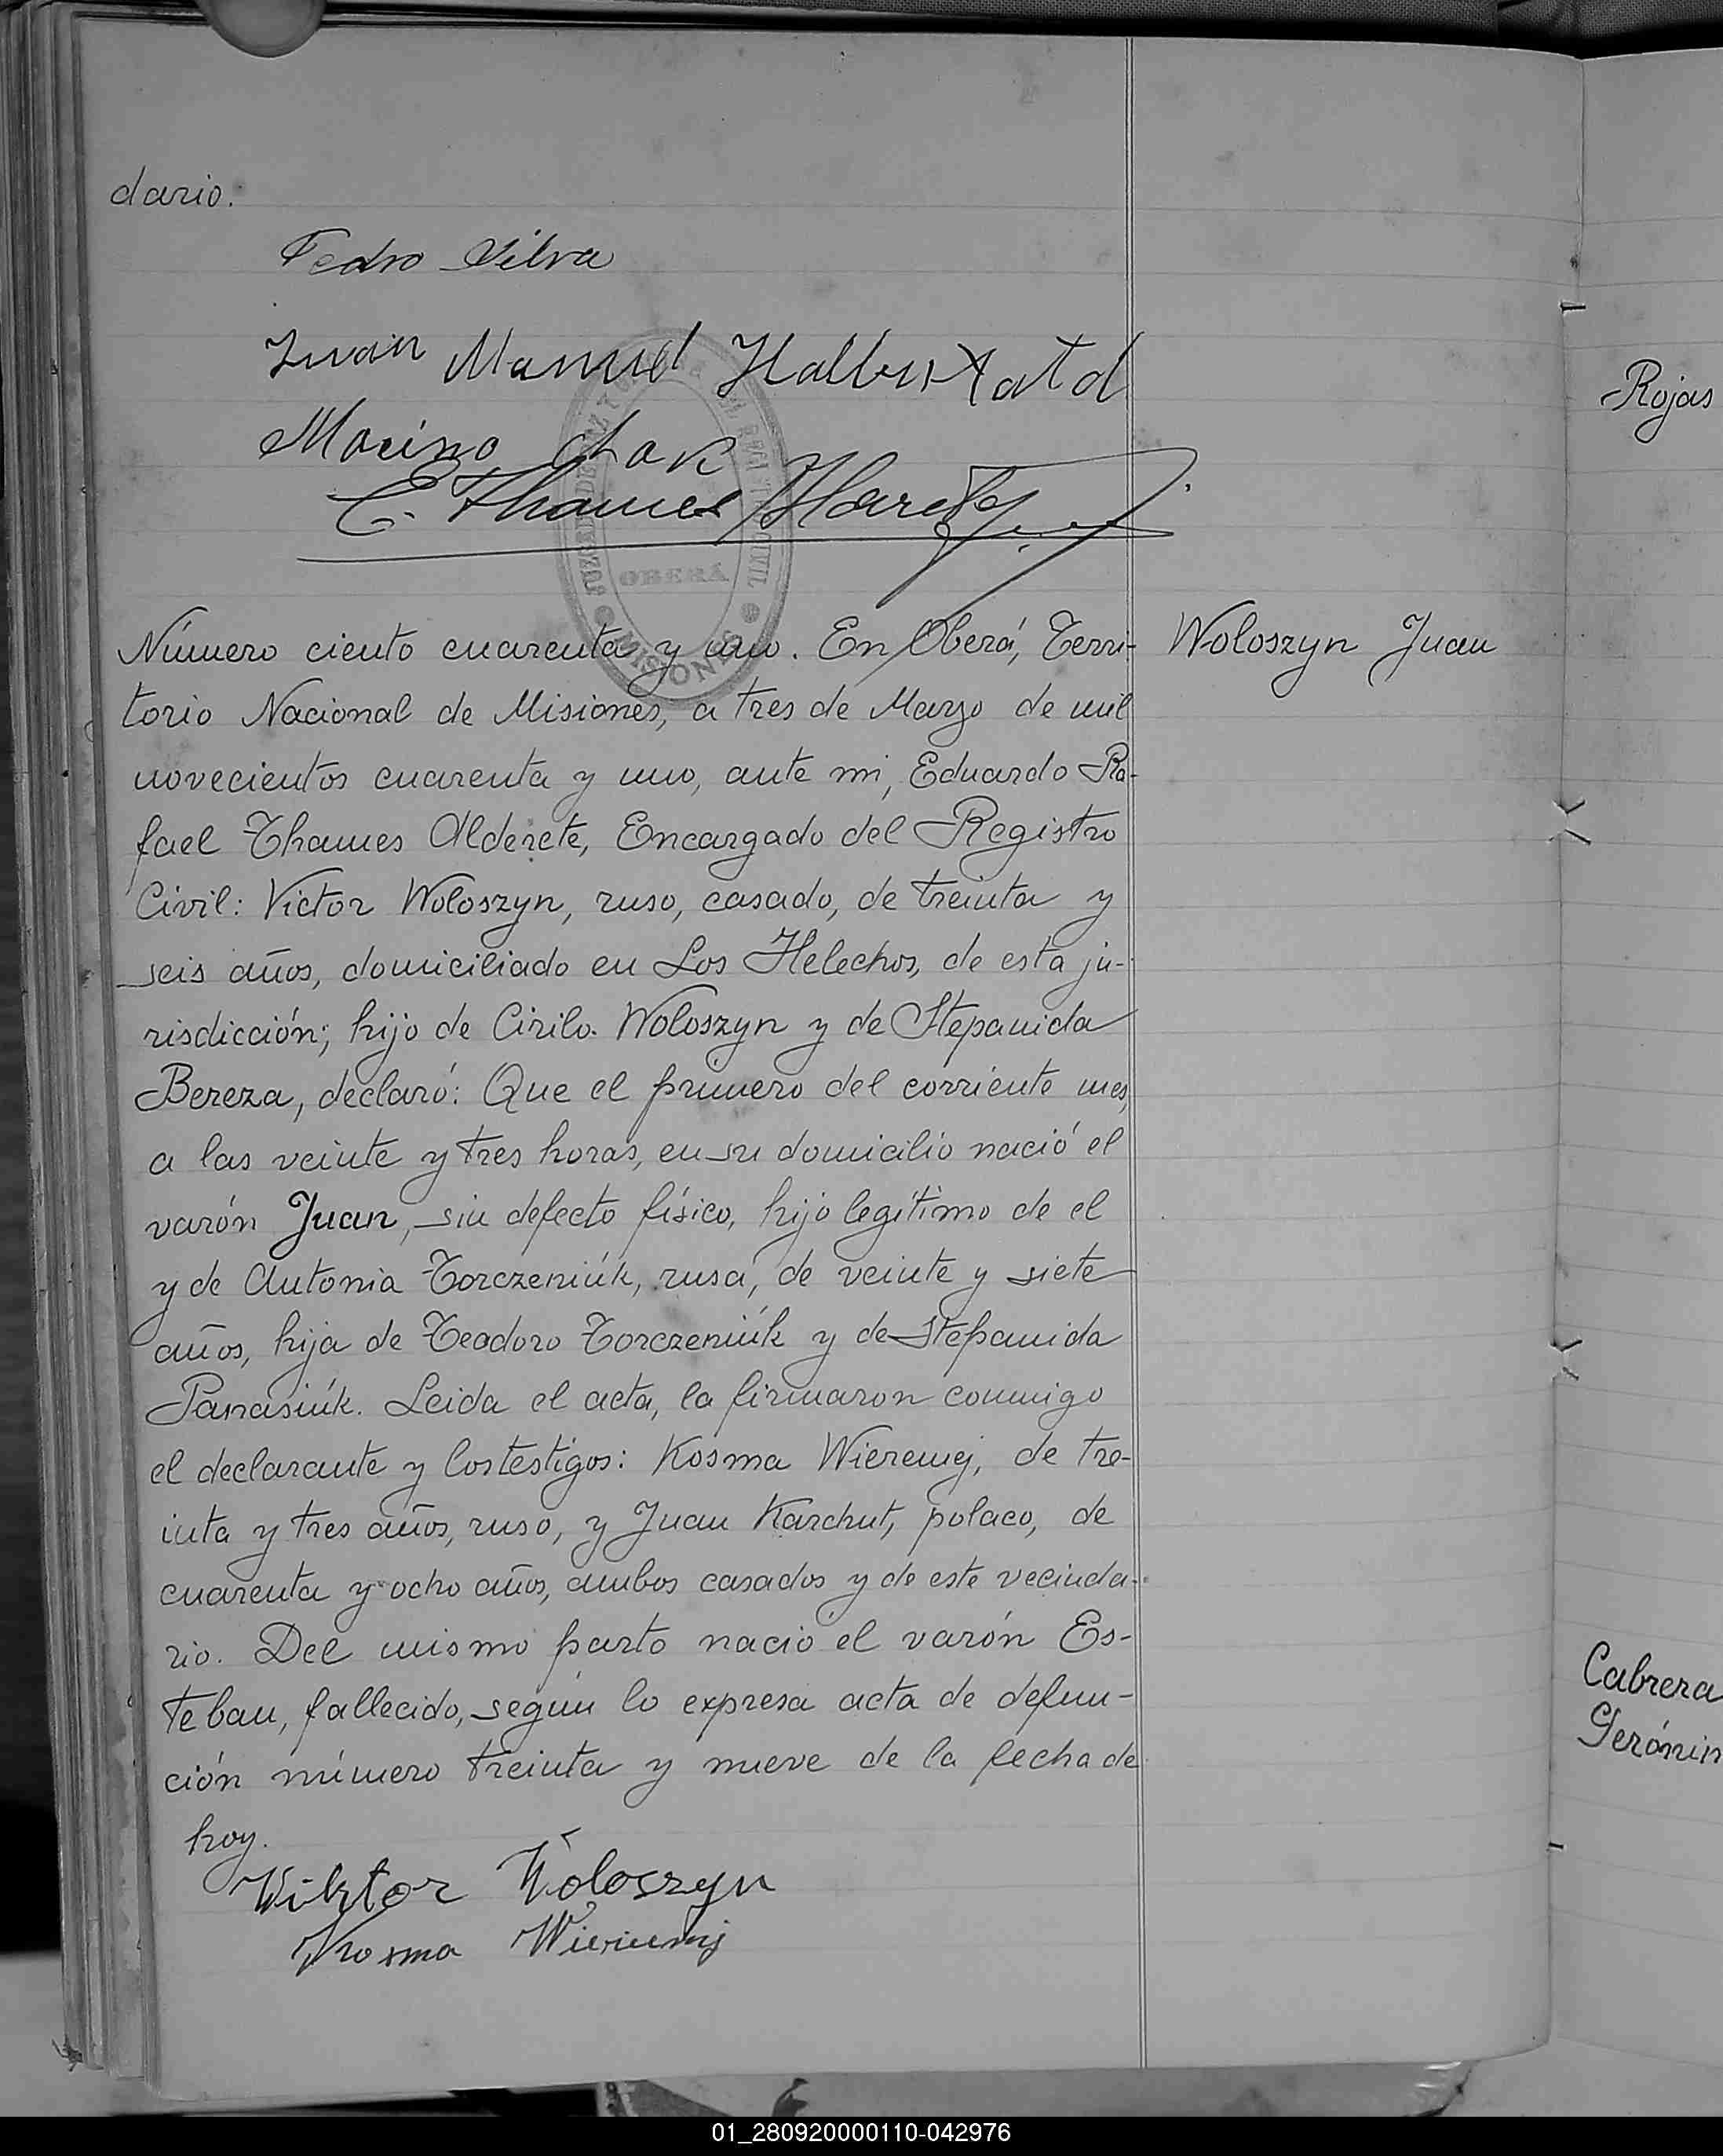 dario.
Pedro Silva
Juan Manuel Halbertatd
Marino
E. Thames Alderete
JUZGADO DE PAZ Y REGISTRO CIVIL
OBERÁ
MISIONES
Número ciento cuarenta y uno. En Oberá, Terri-
Woloszyn Juan
torio Nacional de Misiones, a tres de Marzo de mil
novecientos cuarenta y uno, ante mi, Eduardo Ra-
fael Thames Alderete, Encargado del Registro
Civil: Victor Woloszyn, ruso, casado, de treinta y
seis años, domiciliado en Los Helechos, de esta ju-
risdicción; hijo de Cirilo Woloszyn y de Stepanida
Bereza, declaró: Que el primero del corriente mes,
a las veinte y tres horas, en su domicilio nació el
varón Juan, sin defecto físico, hijo legítimo de el
y de Antonia Torczeniúk, rusa, de veinte y siete
años, hija de Teodoro Torczeniúk y de Stepanida
Panasiúk. Leida el acta, la firmaron conmigo
el declarante y los testigos: Kosma Wieremij, de tre-
inta y tres años, ruso, y Juan Karchut, polaco, de
cuarenta y ocho años, ambos casados y de este vecinda-
rio. Del mismo parto nació el varón Es-
teban, fallecido, según lo expresa acta de defun-
ción número treinta y nueve de la fecha de
hoy.
Wiktor Woloszyn
Kosma Wieremij
Rojas
Cabrera
Gerónim
01_280920000110-042976